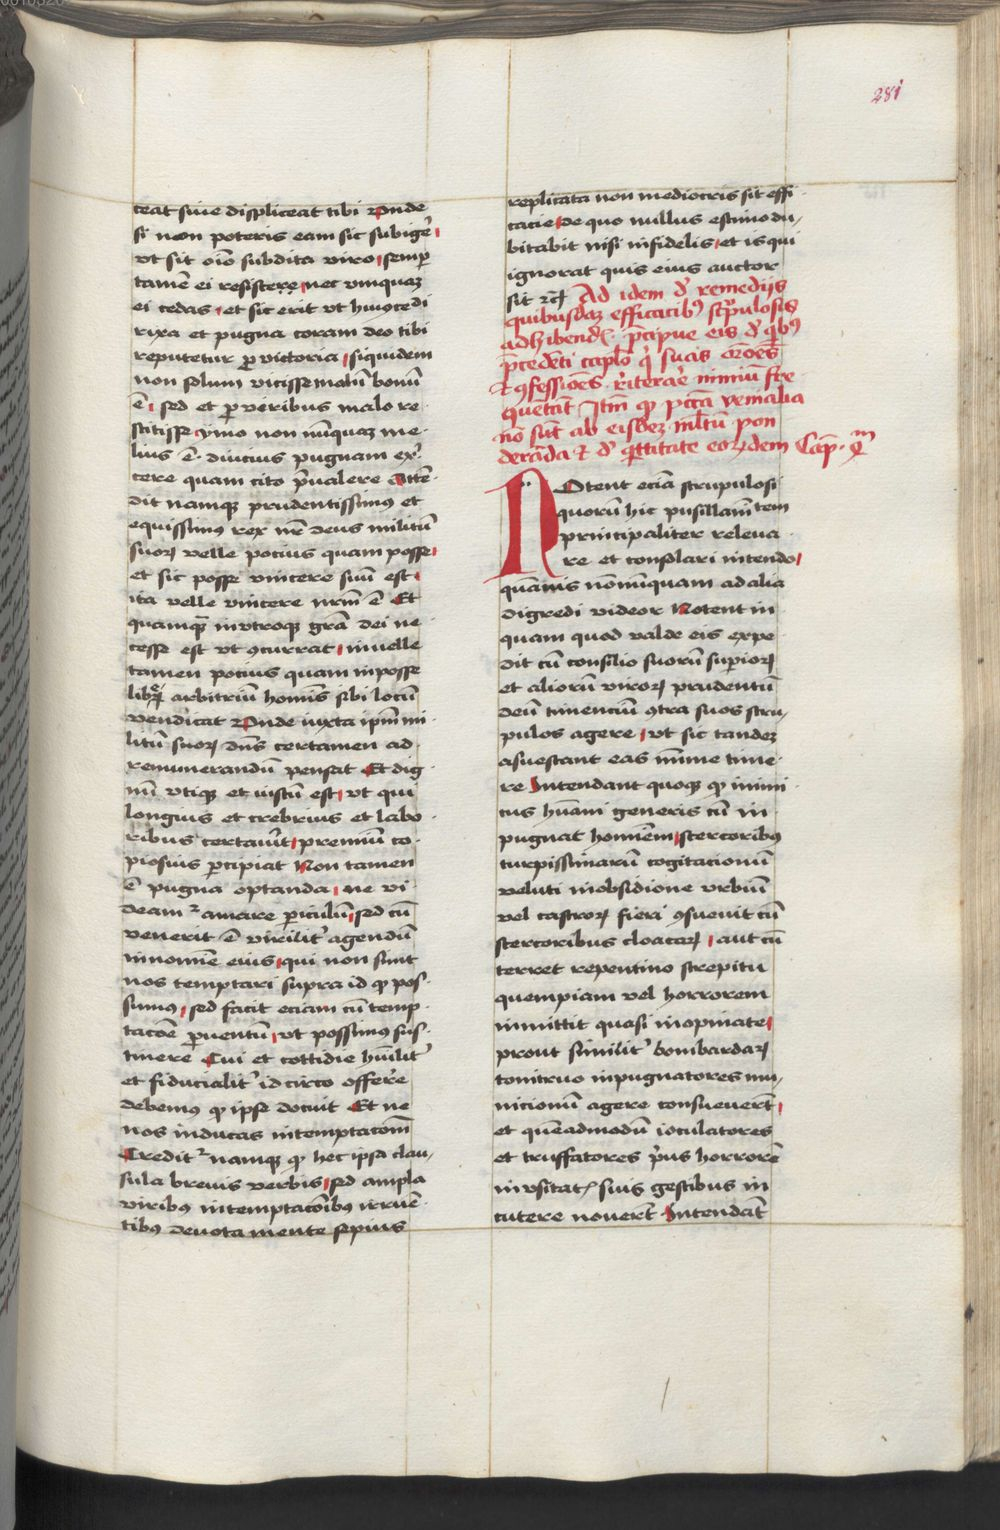 281
ceat siue displiceat tibi Unde
si non poteris eam sic subigẽ
vt sit oı̃o subdita viro semꝑ
tamẽ ei resistere nec vnquaꝫ
ei cedas et sic erit vt huiꝯcedi
rixa et pugna coram deo tibi
reputetur ꝓ victoria siquidem
non solum vicisse malũ bonũ
ẽ sed et ꝓ viribus malo re
stitisse ymo non nũquaꝫ me
lius ẽ diucius pugnam ex̾
cere quam cito p̾ualere Attẽ
dit namqꝫ prudentissimꝰ et
equissimꝰ rex nr̃ deus militũ
suoꝝ velle pocius quam posse
et sic posse vincere suũ est
ita velle vincere nrm̃ ẽ Et
quamqꝫ̃ in vtroqꝫ grã dei ne
cesse est vt ꝯcurrat in velle
tamen pocius quam in posse
libeꝝ arbitriũ homı̃s sibi locũ
vendicat Unde iuxta ipm̃ mi
litũ suoꝝ dñs certamen ad
remunerandũ pensat Et dig
nũ vtiqꝫ et iustũ est vt qui
longius et crebrius et labo
ribus certauı̾t premiũ co
piosius ꝑcipiat Non tamen
ẽ pugna optanda ne vi
deamꝛ amare ꝑiculũ sed cũ
venerit ẽ virilit̾ agendũ
in noı̃e eius qui non sinit
nos temptari supra id ꝙ pos
sumꝰ sed facit eciam cũ temp
tacõe ꝓuentũ vt possimꝰ sus
tinere Cui et cottidie hũilit̾
et fiducialit̾ idcirco offerr̃e
debemꝰ ꝙ ipse docuit Et ne
nos inducas in temptacõm
Creditꝛ namqꝫ ꝙ hec ipsa clau
sula breuis verbis sed ampla
viribꝰ in temptacõibꝰ irruẽ
tibꝰ deuota mente sepius
replicata non mediocris sit effi
cacie de quo nullus estimo du
bitabit nisi infidelis et is qui
ignorat quis eius auctor
sit ꝛcꝭ Ad idem d̾ remedijs
quibusdaꝫ efficacibꝰ scr̃pulosis
adhibendꝭ p̾cipue eis d̾ q̾bꝰ
p̾cedẽti capl̃o q̾ suas or̃oẽs
et ꝯfessiões r̾iterar̃e nimiũ fre
quẽtãt Itm̃ ꝙ pctã venialia
nõ sũt ab eisdeꝫ ml̃tũ pon
derãda et d̾ q̃ntitate eorꝝdem Cap̾ q̾m
Notent eciã scrupulosi
quorũ hic pusillanı̃tem
principaliter releua
re et consolari intendo
quãuis nõnũquam ad alia
digredi videor Notent in
quam quod valde eis expe
dit cũ consilio suorũ superioꝝ
et aliorũ viroꝝ prudentũ
deũ timenciũ ꝯtra suos scru
pulos agere vt sic tandeꝫ
asuescant eas mı̃me time
re Intendant quoqꝫ ꝙ inimi
cus hũani generis cũ in
pugnat hominẽ stercoribꝰ
turpissimarũ cogitacionũ
veluti in obsidione vrbiũ
vel castroꝝ fieri ꝯsueuit cũ
stercoribus cloacaꝝ aut cũ
terret repentino strepitu
quempiam vel horrorem
inmittit quasi inopinate
prout similit̾ bombardaꝝ
tonitruo inpugnatores mu
nicionũ agere consueuert̃
et quẽadmodũ ioculatores
et truffatores p̾us horrorẽ
inusitatꝭ suis gestibus in
cutere nouert̃ Intendãt